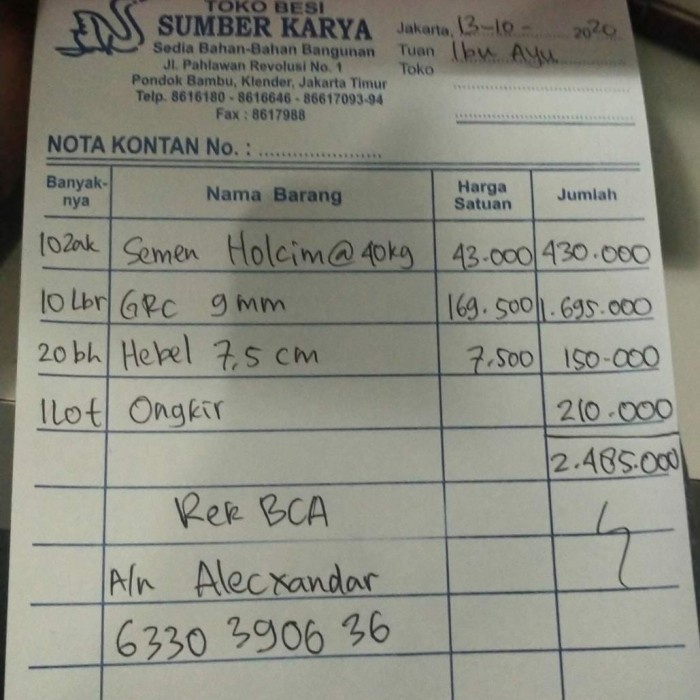 TOKO BESI
SUMBER KARYA
Sedia Bahan-Bahan Bangunan
Jl. Pahlawan Revolusi No. 1
Pondok Bambu, Klender, Jakarta Timur
Telp. 8616180 - 8616646 - 86617093-94
Fax : 8617988
Jakarta, 13-10- 2020
Tuan Ibu Ayu
Toko
NOTA KONTAN No. :
Banyak-nya Nama Barang Harga Satuan Jumlah
10 zak Semen Holcim @ 40kg 43.000 430.000
10 Lbr GRC 9 mm 169.500 1.695.000
20 bh Hebel 7,5 cm 7.500 150.000
1 Lot Ongkir 210.000
2.485.000
Rek BCA
A/n Alecxandar
6330 3906 36